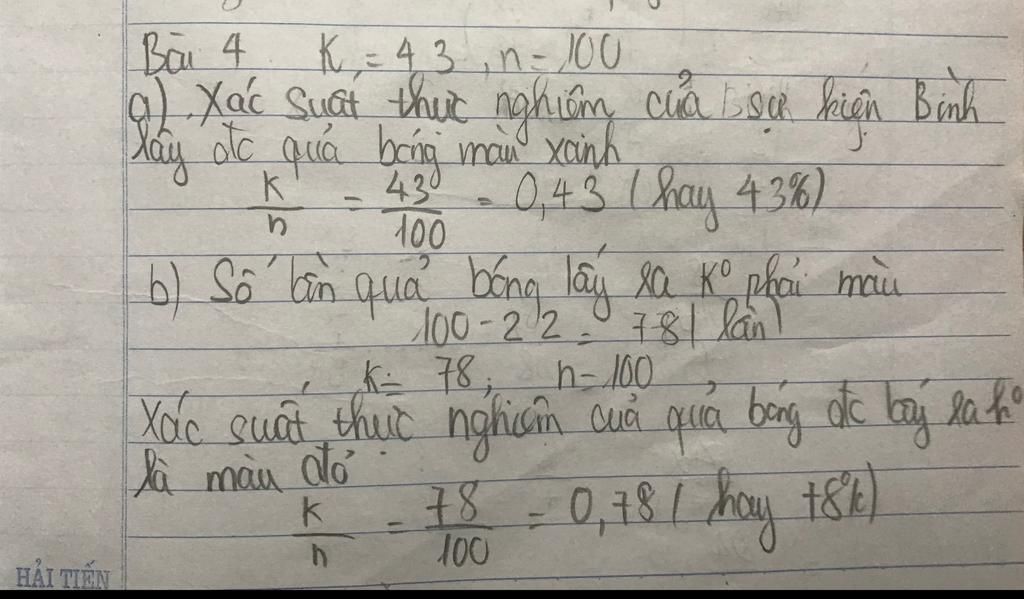 Bài 4 K = 43, n = 100
a) Xác suất thực nghiệm của sự kiện Bình
lấy đc quả bóng màu xanh
K/n = 43/100 = 0,43 (hay 43%)
b) Số lần quả bóng lấy ra K° phải màu
100 - 22 = 78 (lần)
k = 78; n = 100
Xác suất thực nghiệm của quả bóng đc lấy ra k°
là màu đỏ
K/n = 78/100 = 0,78 (hay 78%)
HẢI TIẾN